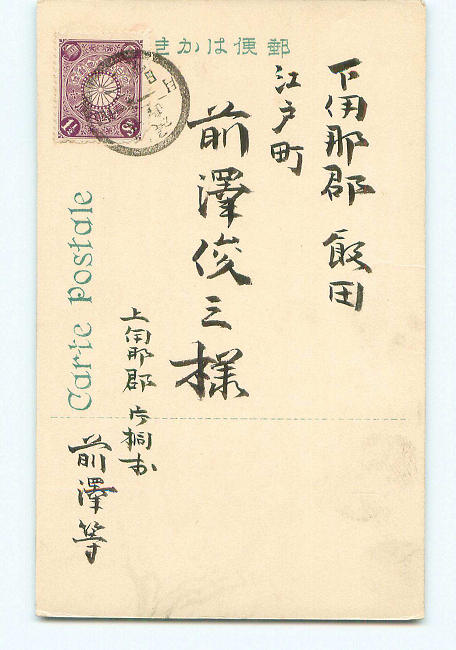 郵便はかき
下伊那郡 飯田
江戸町
前澤俊三様
上伊那郡 片桐村
前澤等
Carte Postale
1½ Sn